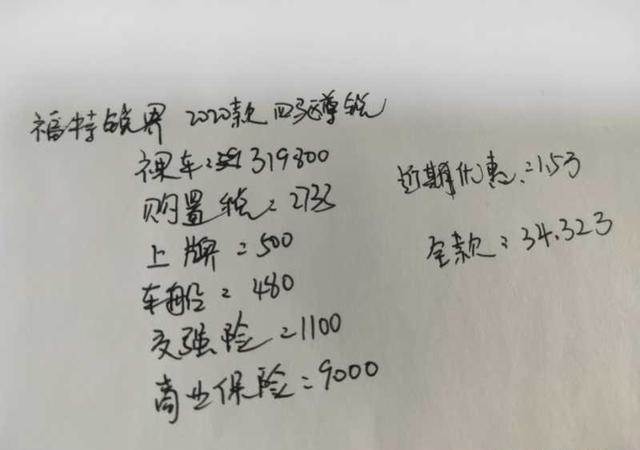 福特锐界 2020款 四驱尊锐
裸车: 319800
购置税:2733
上牌:500
车船:480
交强险:1100
商业保险:9000
近期优惠:1.53
全款:34.323